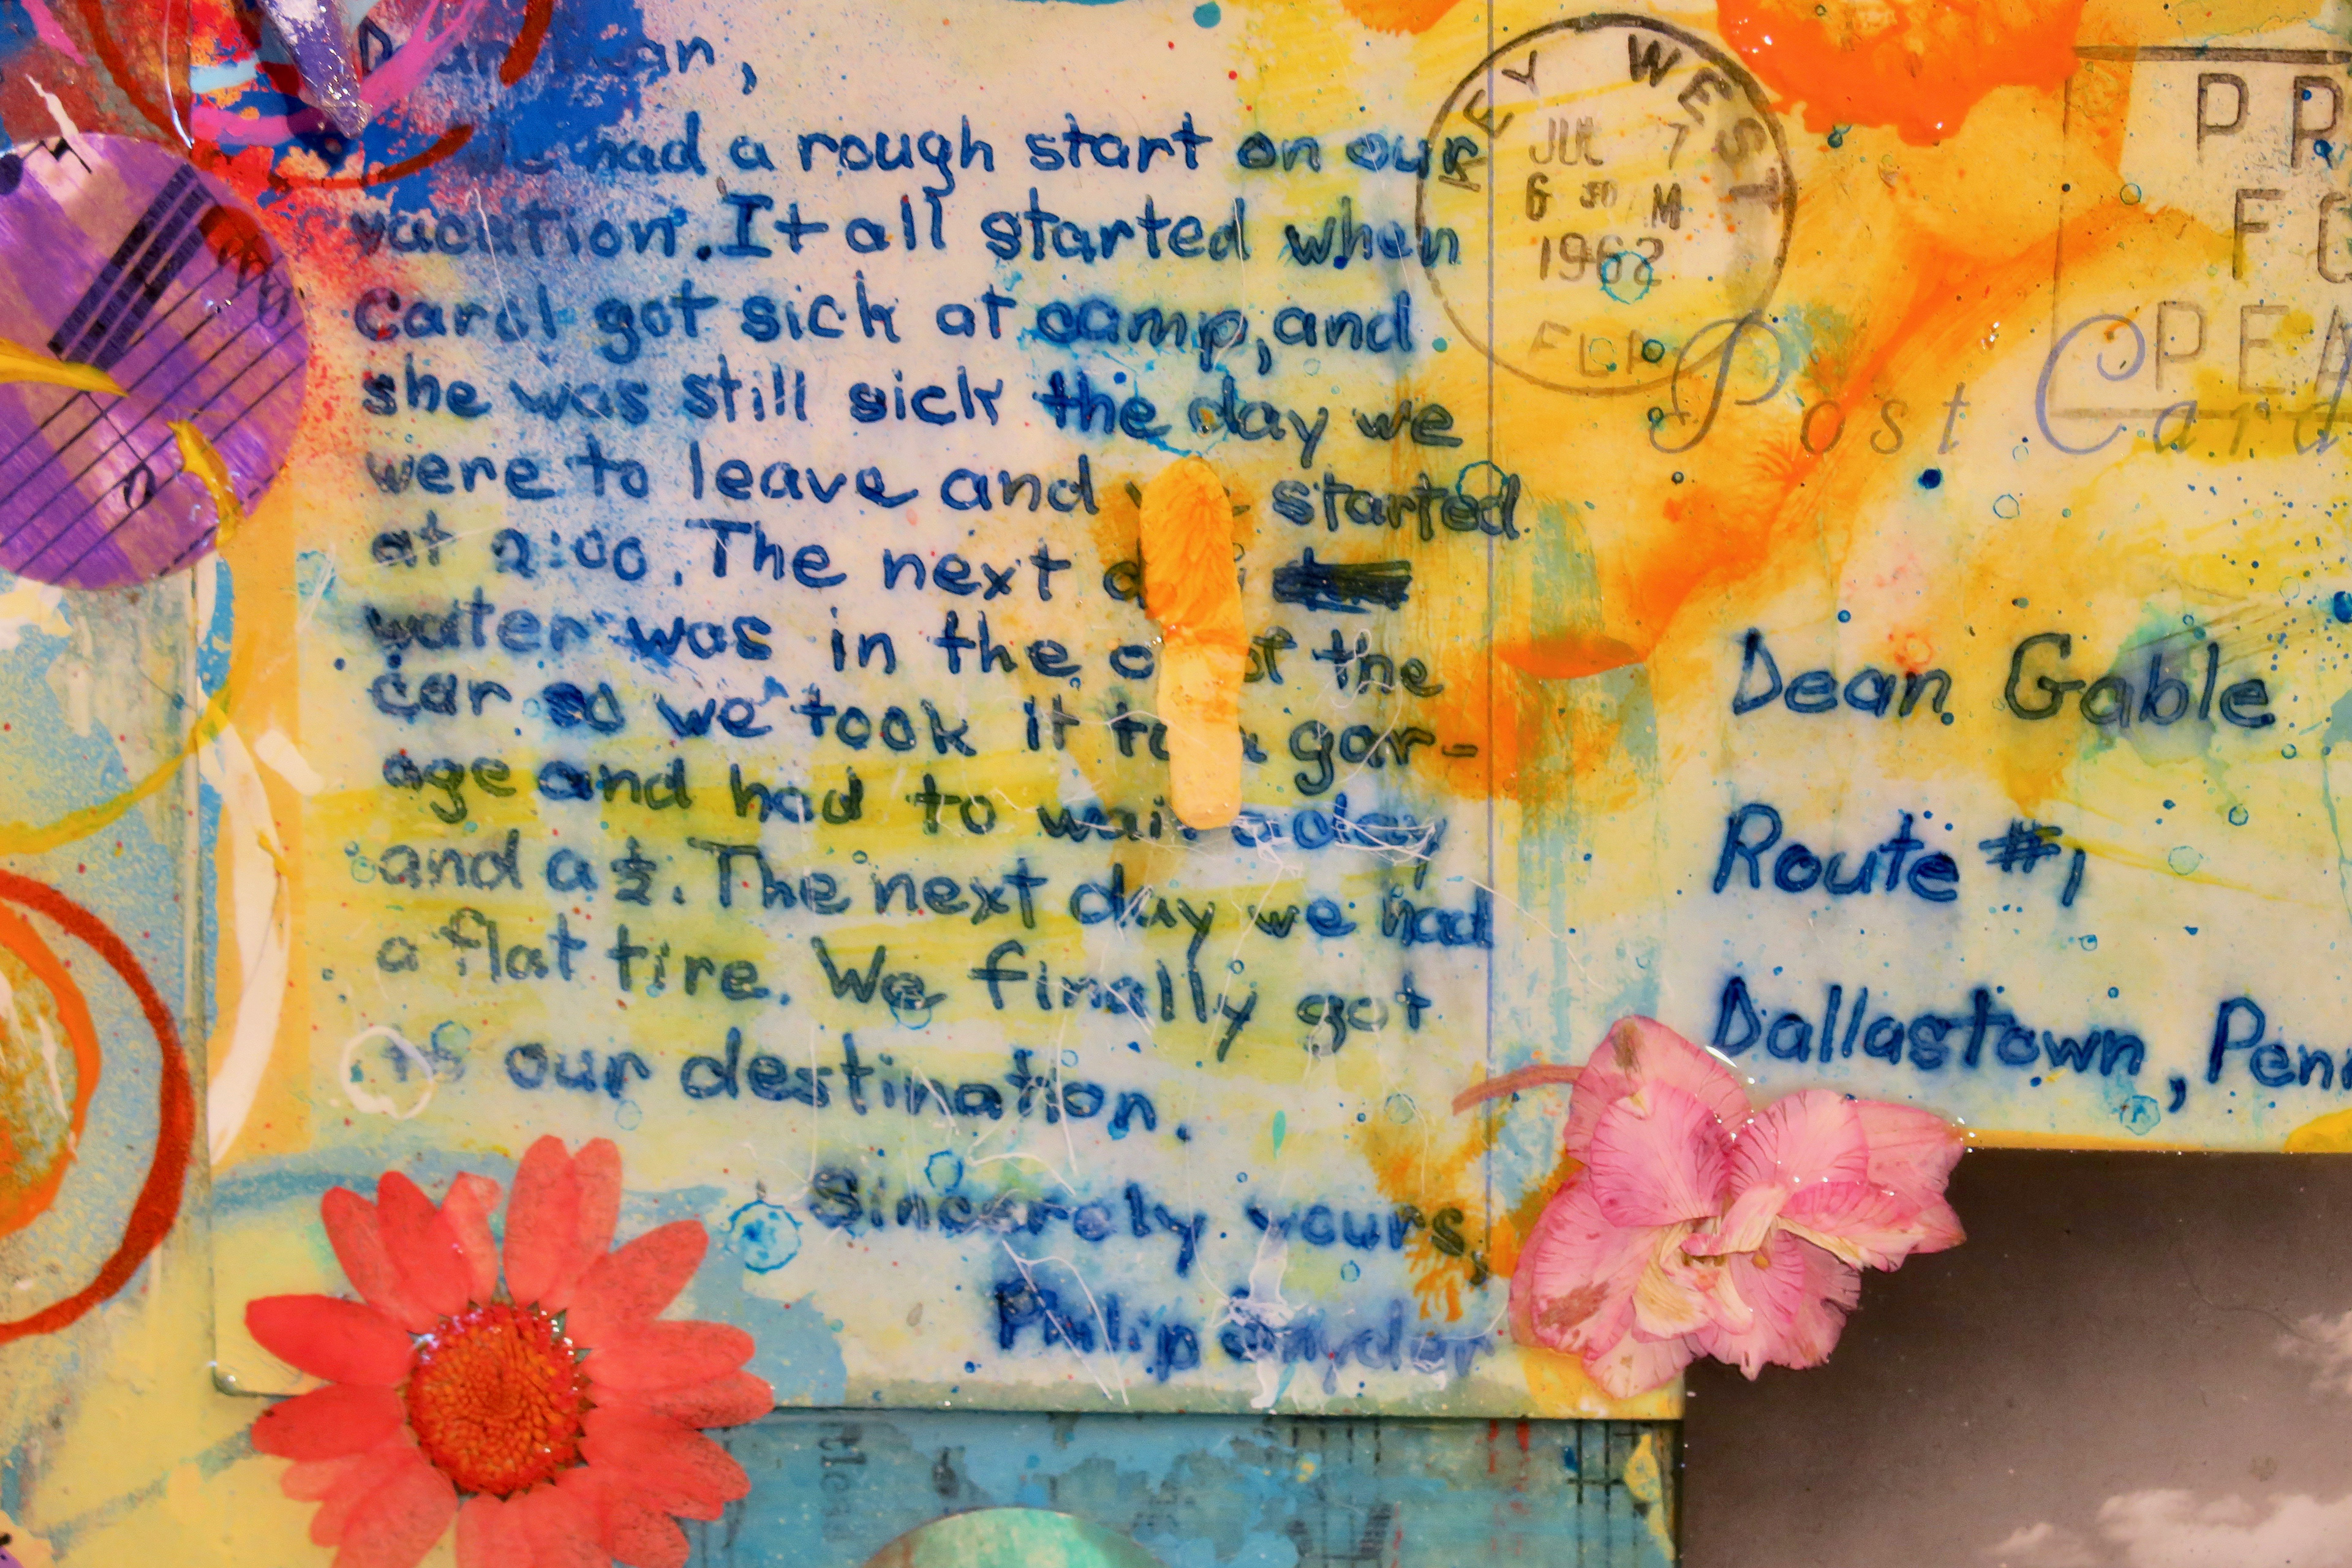 Dear Dean,
We had a rough start on our
vacation. It all started when
Carol got sick at camp, and
she was still sick the day we
were to leave and we started
at 2:00. The next
water was in the of the
car so we took it to a gar-
age and had to wait a day
and a ½. The next day we had
a flat tire. We finally got
to our destination.
Sincerely yours,
Philip Snyder
KEY WEST
JUL 7
6 30 M
1962
FLA
PR
FO
PEA
Post Card
Dean Gable
Route #1
Dallastown, Penn